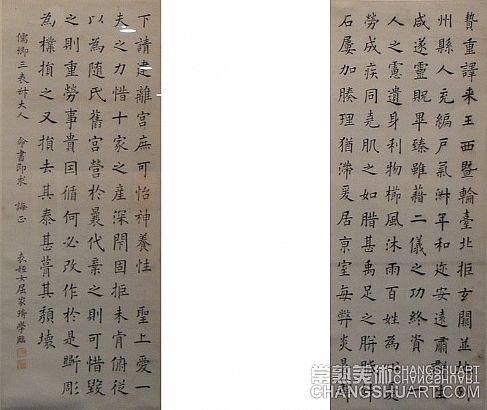 贄重譯来王西暨輪臺北拒玄關並地
州縣人充編戶氣淑年和迩安遠肅群生
咸遂靈貺畢臻雖藉二儀之功終資一
人之慮遺身利物櫛風沐雨百姓為心
勞成疾同堯肌之如腊甚禹足之胼胝
石屢加腠理猶滯爰居京室每弊炎暑
下請建離宮庶可怡神養性 聖上愛一
夫之力惜十家之産深閉固拒未肯俯従
以為随氏舊宮營於曩代棄之則可惜毀
之則重勞事貴因循何必改作於是斲彫
為樸損之又損去其泰甚葺其頹壊
儒卿三表 大人 命書即求 誨正 表姪女屈家 學臨
常熟美術 CHANGSHUART
CHANGSHUART